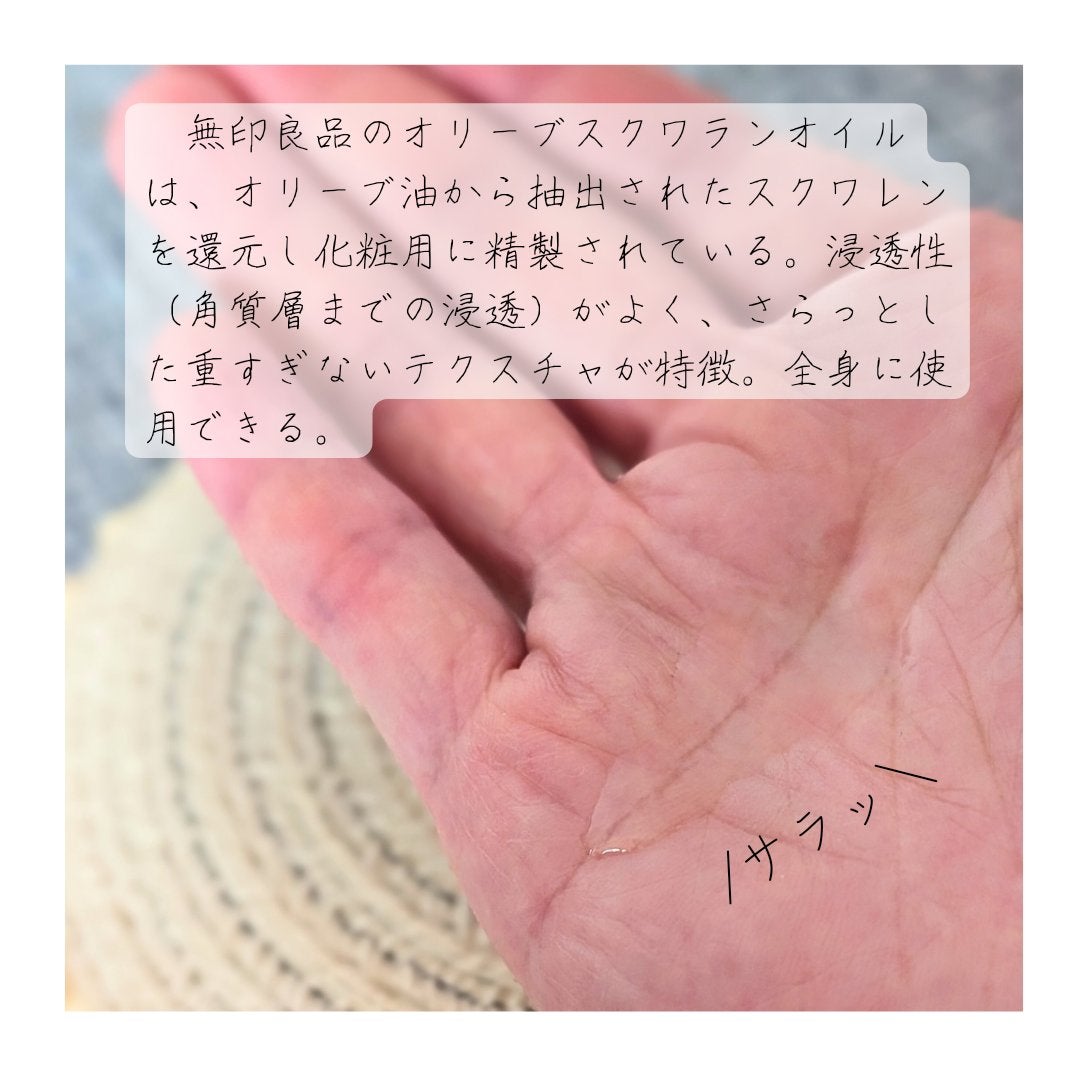 無印良品のオリーブスクワランオイル
は、オリーブ油から抽出されたスクワレン
を還元し化粧用に精製されている。浸透性
（角質層までの浸透）がよく、さらっとし
た重すぎないテクスチャが特徴。全身に使
用できる。
\サラッ/